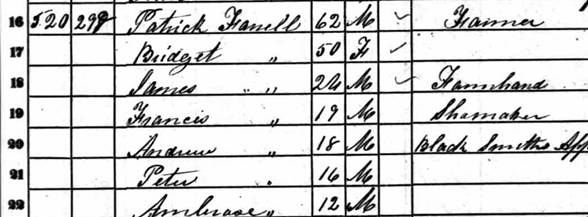 16 520 298 Patrick Farrell 62 M ✓ Farmer
17 Bridget " 50 F ✓
18 James " " 24 M ✓ Farmhand
19 Francis " 19 M Shomaker
20 Andrew " 18 M Black Smiths App
21 Peter " 16 M
22 Ambrose " 12 M